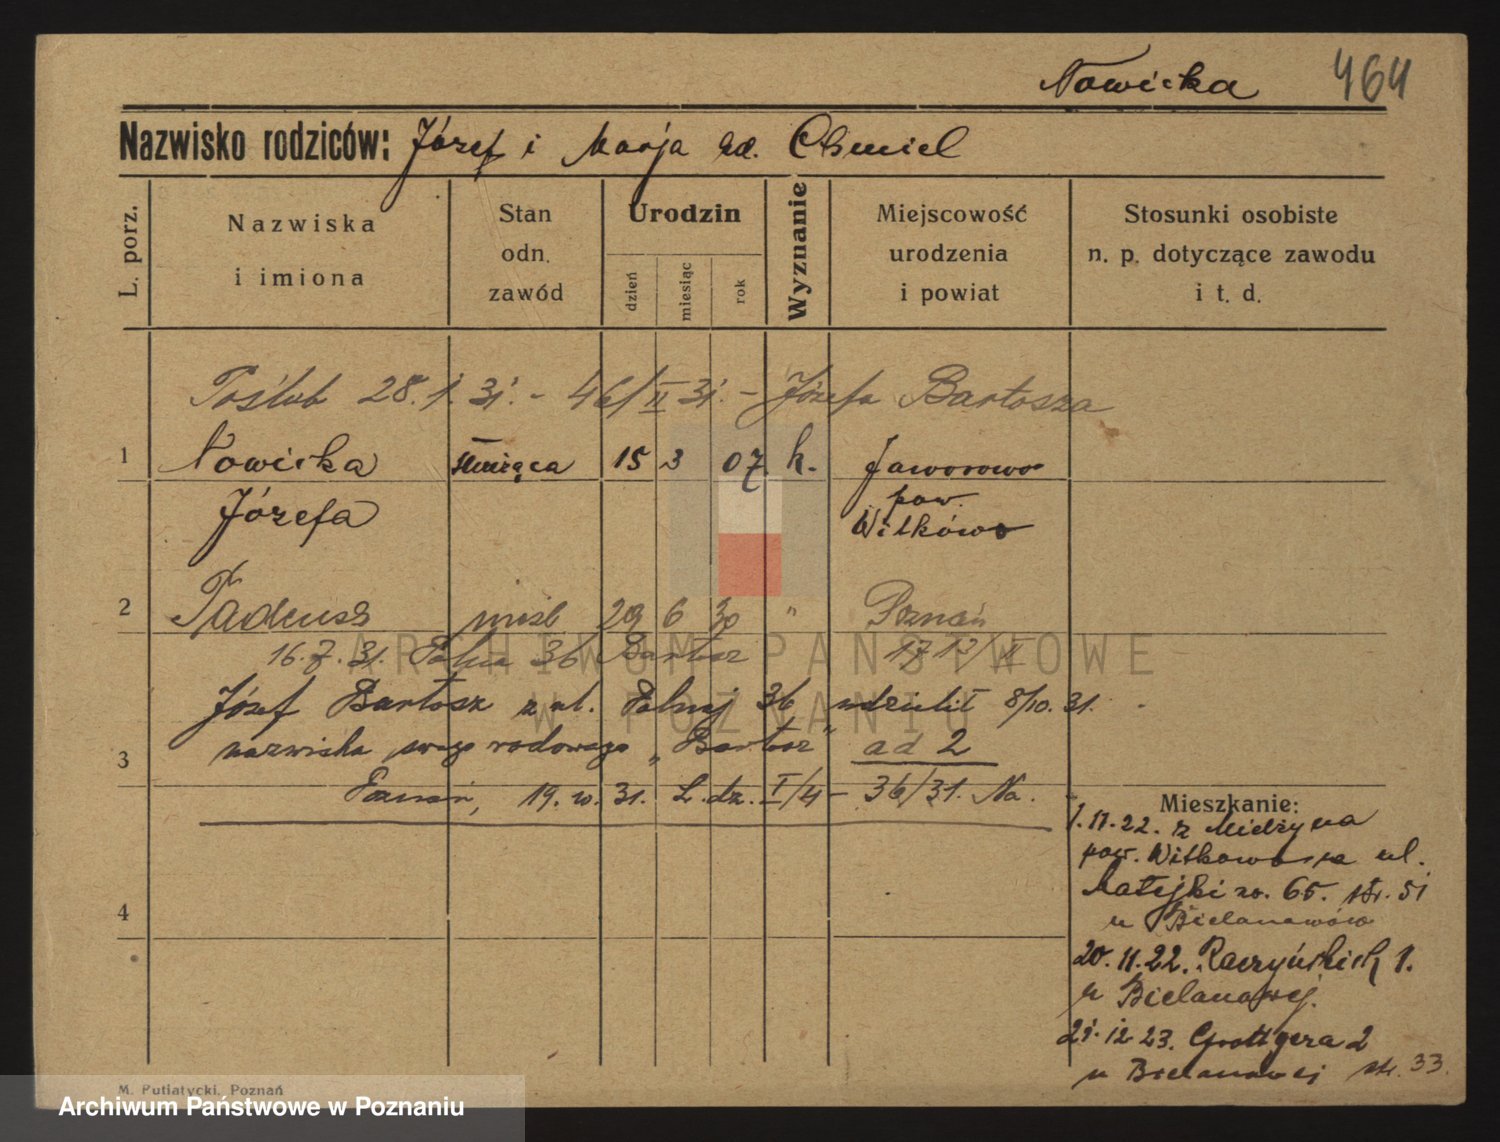 Nowicka 464
Nazwisko rodziców: Józef i Marja zd. Chmiel
L. porz.
Nazwiska
i imiona
Stan
odn.
zawód
Urodzin
dzień
miesiąc
rok
Wyznanie
Miejscowość
urodzenia
i powiat
Stosunki osobiste
n. p. dotyczące zawodu
i t. d.
Poślub 28.1.31. - 46/II 31. - Józefa Bartosza
1 Nowicka służąca 15 3 07 k. Jaworowo
Józefa pow.
Witkowo
2 Tadeusz nieśl 29 6 30 " Poznań
16.7.31. Polna 36 Bartosz
Józef Bartosz z ul. Polnej 36 udzielił 8/10.31.
3 nazwiska swego rodowego „Bartosz” ad 2
Poznań, 19.10.31. L.dz. I/4 - 36/31. Na.
4
Mieszkanie:
1.11.22. z
pow. Witkowo na ul.
Matejki no. 65. str. 51
u
20.11.22. Raczyńskich 1.
u Bielanowej.
21.12.23. Grottgera 2
u Bielanowej str. 33
ARCHIWUM PAŃSTWOWE
W POZNANIU
M. Putiatycki, Poznań
Archiwum Państwowe w Poznaniu